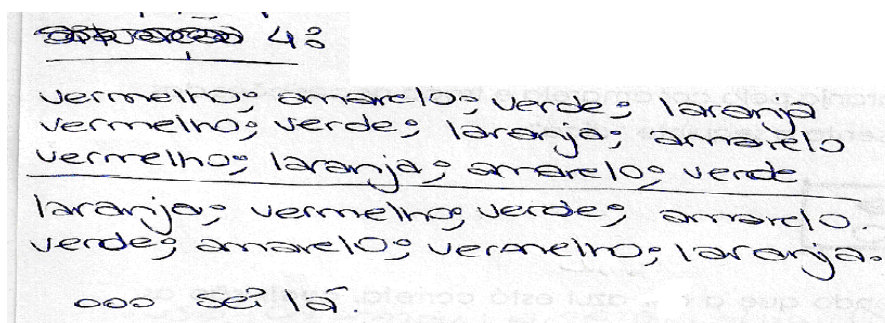 4:
vermelho; amarelo; verde; laranja
vermelho; verde; laranja; amarelo
vermelho; laranja; amarelo; verde
laranja; vermelho; verde; amarelo.
verde; amarelo; vermelho; laranja.
ooo sei lá.